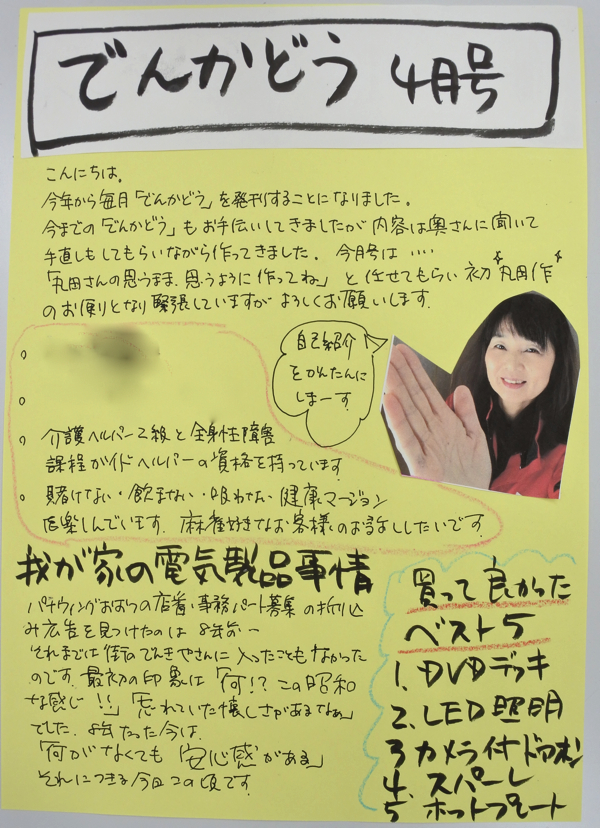 でんかどう 4月号
こんにちは。
今年から毎月「でんかどう」を発刊することになりました。
今までの「でんかどう」もお手伝いしてきましたが内容は奥さんに聞いて
手直しもしてもらいながら作ってきました。今月号は‥‥
「丸田さんの思うまま、思うように作ってね」と任せてもらい初“丸田作”
のお便りとなり緊張していますがよろしくお願いします。
自己紹介
をかんたんに
しまーす。
介護ヘルパー2級と全身性障害
課程ガイドヘルパーの資格を持っています。
賭けない・飲まない・吸わない健康マージャン
を楽しんでいます。麻雀好きなお客様とお話ししたいです。
我が家の電気製品事情
の店番・事務パート募集の折り込
み広告を見つけたのは8年前ー
それまでは街のでんきやさんに入ったこともなかった
のです。最初の印象は「何!?この昭和
な感じ!!」「忘れていた懐しさがあるなぁ」
でした。8年たった今は、
「何がなくても安心感がある」
それにつきる今日この頃です。
買って良かった
ベスト5
1. DVDデッキ
2. LED照明
3 カメラ付ドアホン
4. スパーレ
5 ホットプレート